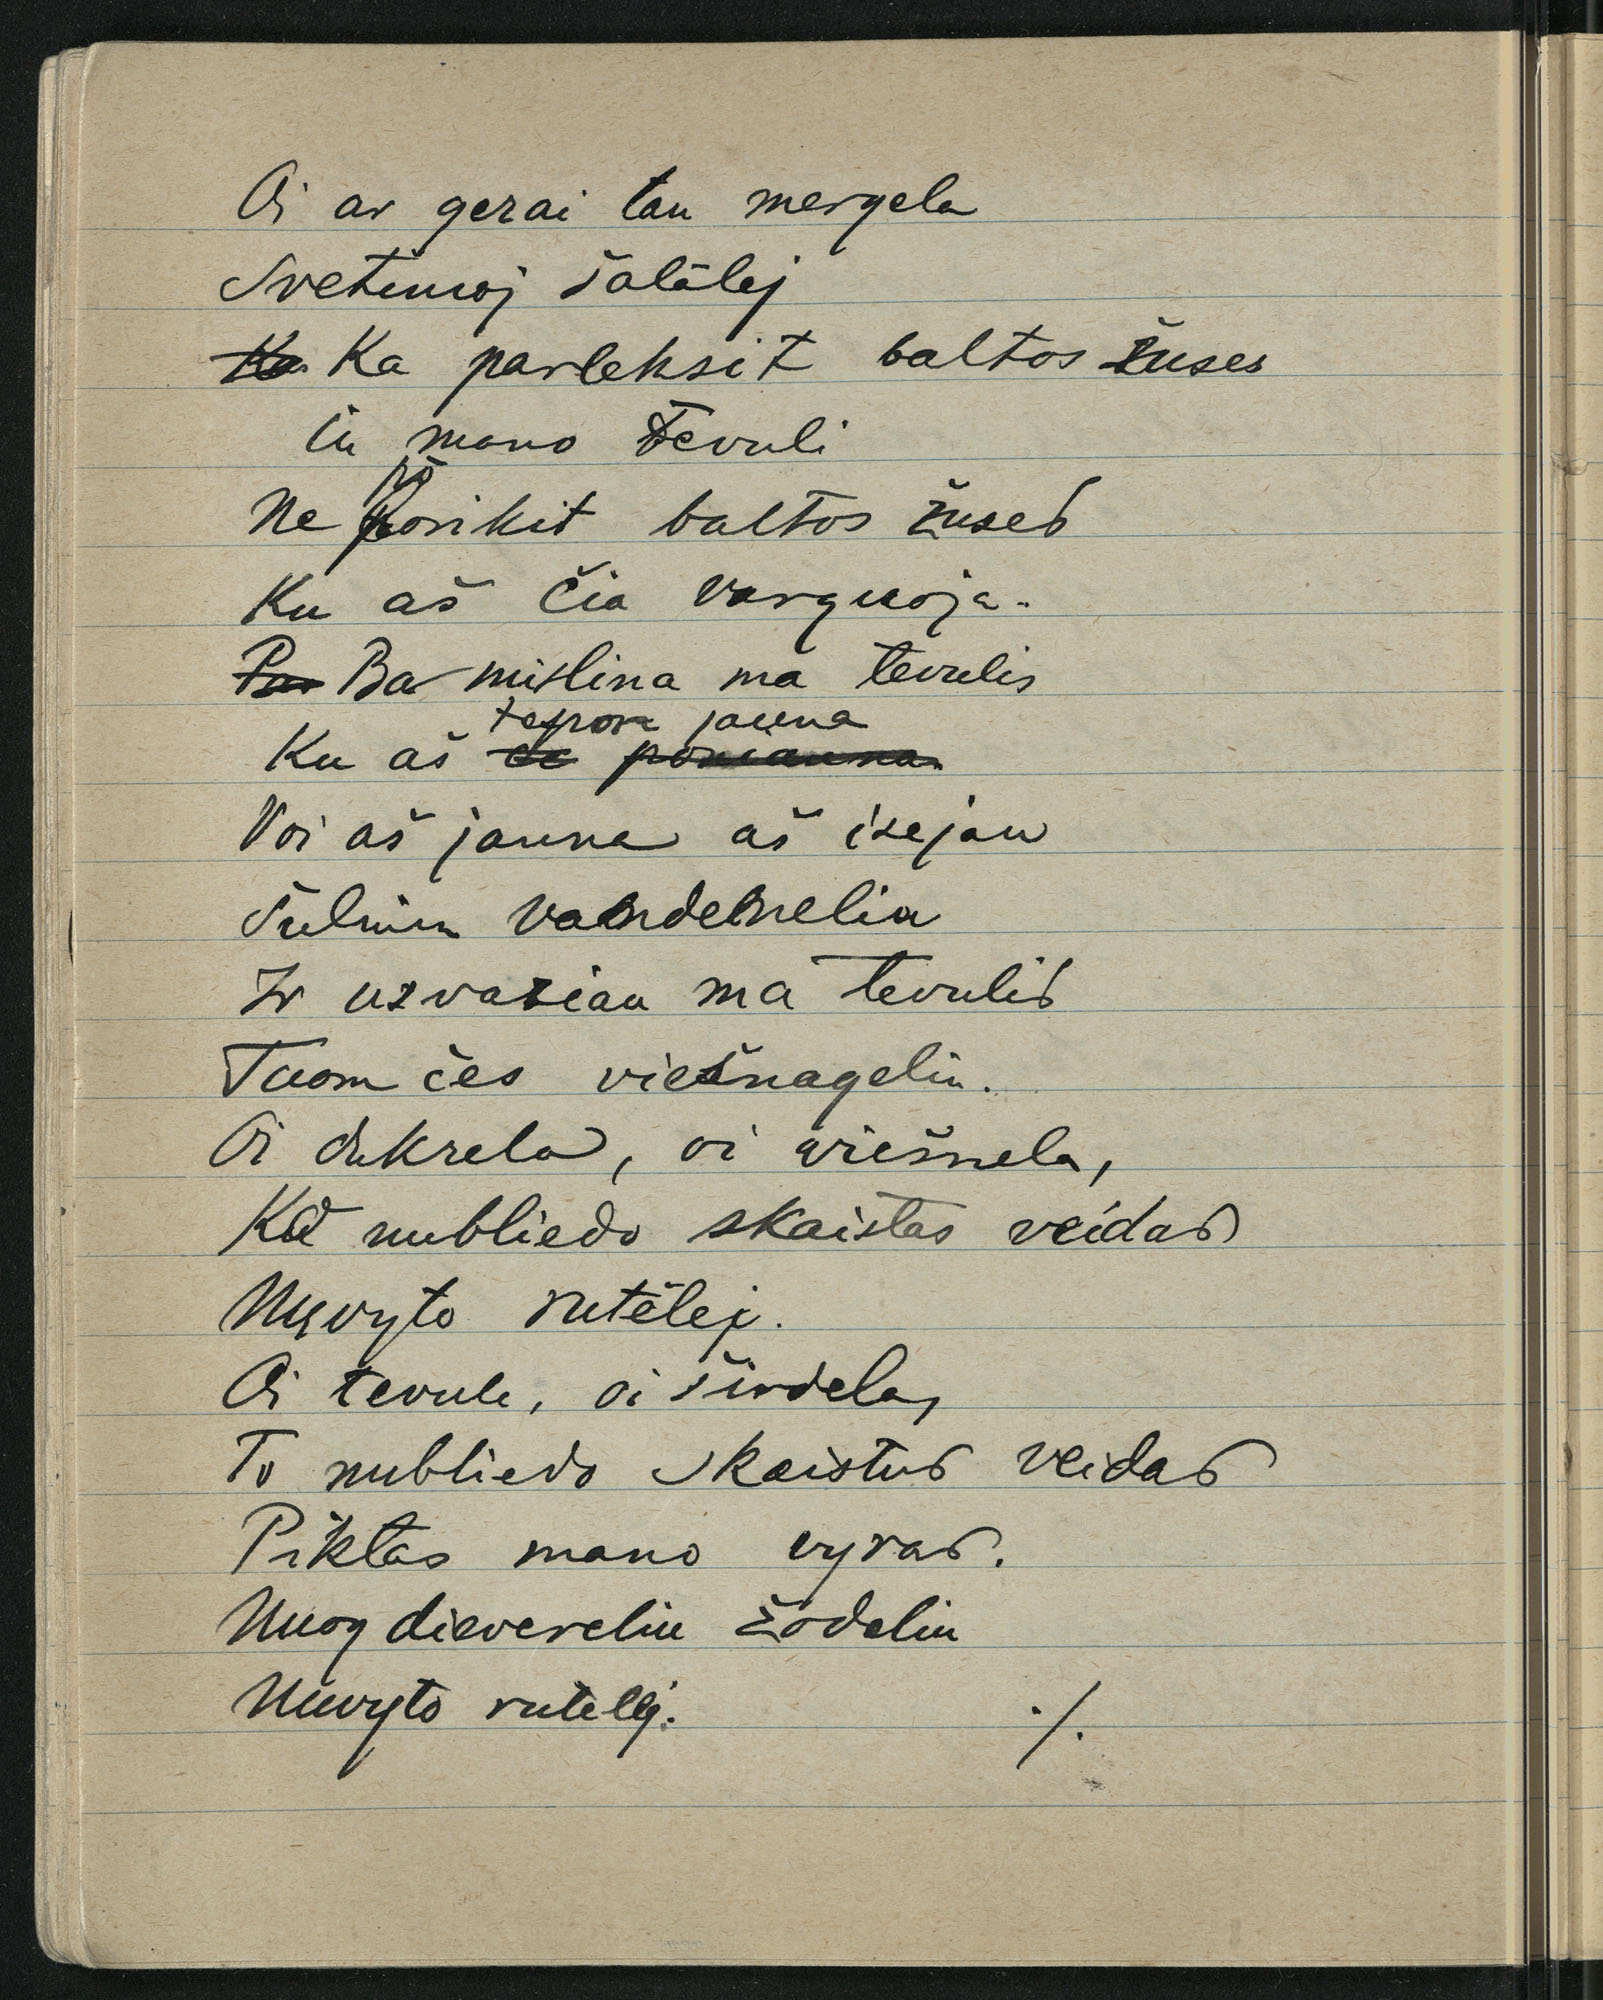 Oi ar gerai tau mergela
Svetimoj šalälej
Ka Ka parleksit baltos žuses
in mano tevuli
Ne pasikit baltos žuses
Ku aš čia varguoja.
Pas Ba mislina ma tevulis
Ku aš tepon jauna
Voi aš jauna aš isejau
Šulniun vandenelia
Ir uzvaziau ma tevulis
Tuom čes viešnagelin.
Oi dukrela, oi viešnela,
Kö nubliedo skaistas veidas
Nuvyto rutėlej.
Oi tevule, oi širdela,
To nubliedo skaistus veidas
Piktas mano vyras.
Nuog dievereliu žodeliu
Nuvyto rutelej.
./.